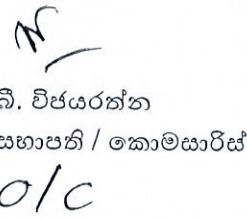 බී. විජයරත්න
සභාපති / කොමසාරිස්
O/C